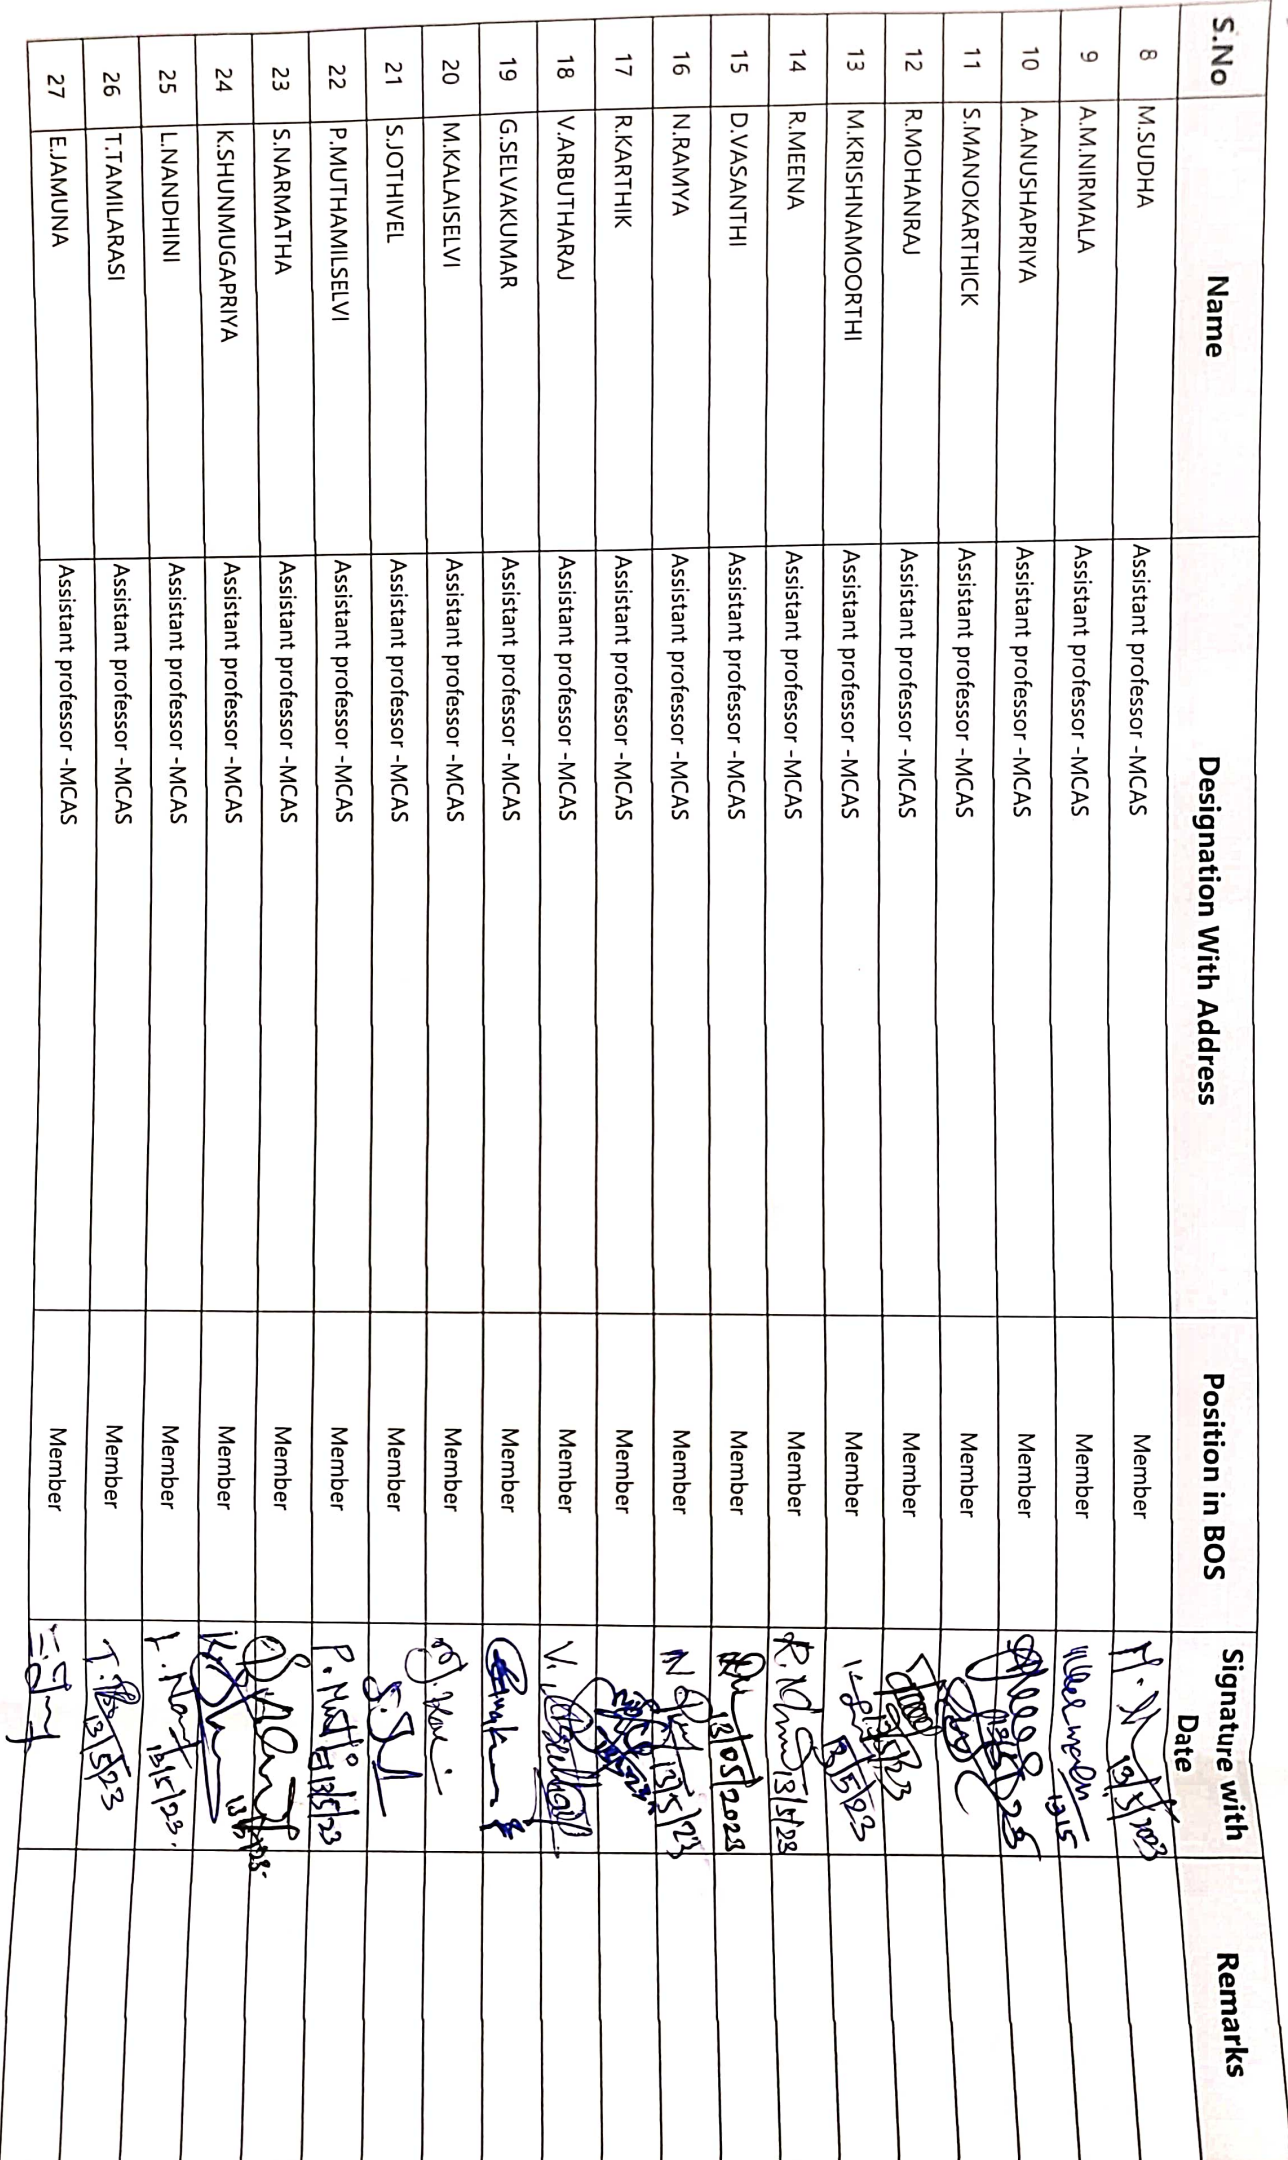 S.No Name Designation With Address Position in BOS Signature with Date Remarks
8 M.SUDHA Assistant professor -MCAS Member 13/5/2023
9 A.M.NIRMALA Assistant professor -MCAS Member 13/5
10 A.ANUSHAPRIYA Assistant professor -MCAS Member
11 S.MANOKARTHICK Assistant professor -MCAS Member
12 R.MOHANRAJ Assistant professor -MCAS Member 13/5/23
13 M.KRISHNAMOORTHI Assistant professor -MCAS Member 13/5/23
14 R.MEENA Assistant professor -MCAS Member 13/5/23
15 D.VASANTHI Assistant professor -MCAS Member 13/05/2023
16 N.RAMYA Assistant professor -MCAS Member 13/5/23
17 R.KARTHIK Assistant professor -MCAS Member
18 V.ARBUTHARAJ Assistant professor -MCAS Member
19 G.SELVAKUMAR Assistant professor -MCAS Member
20 M.KALAISELVI Assistant professor -MCAS Member
21 S.JOTHIVEL Assistant professor -MCAS Member
22 P.MUTHAMILSELVI Assistant professor -MCAS Member 13/5/23
23 S.NARMATHA Assistant professor -MCAS Member
24 K.SHUNMUGAPRIYA Assistant professor -MCAS Member
25 L.NANDHINI Assistant professor -MCAS Member 13/5/23.
26 T.TAMILARASI Assistant professor -MCAS Member 13/5/23
27 E.JAMUNA Assistant professor -MCAS Member